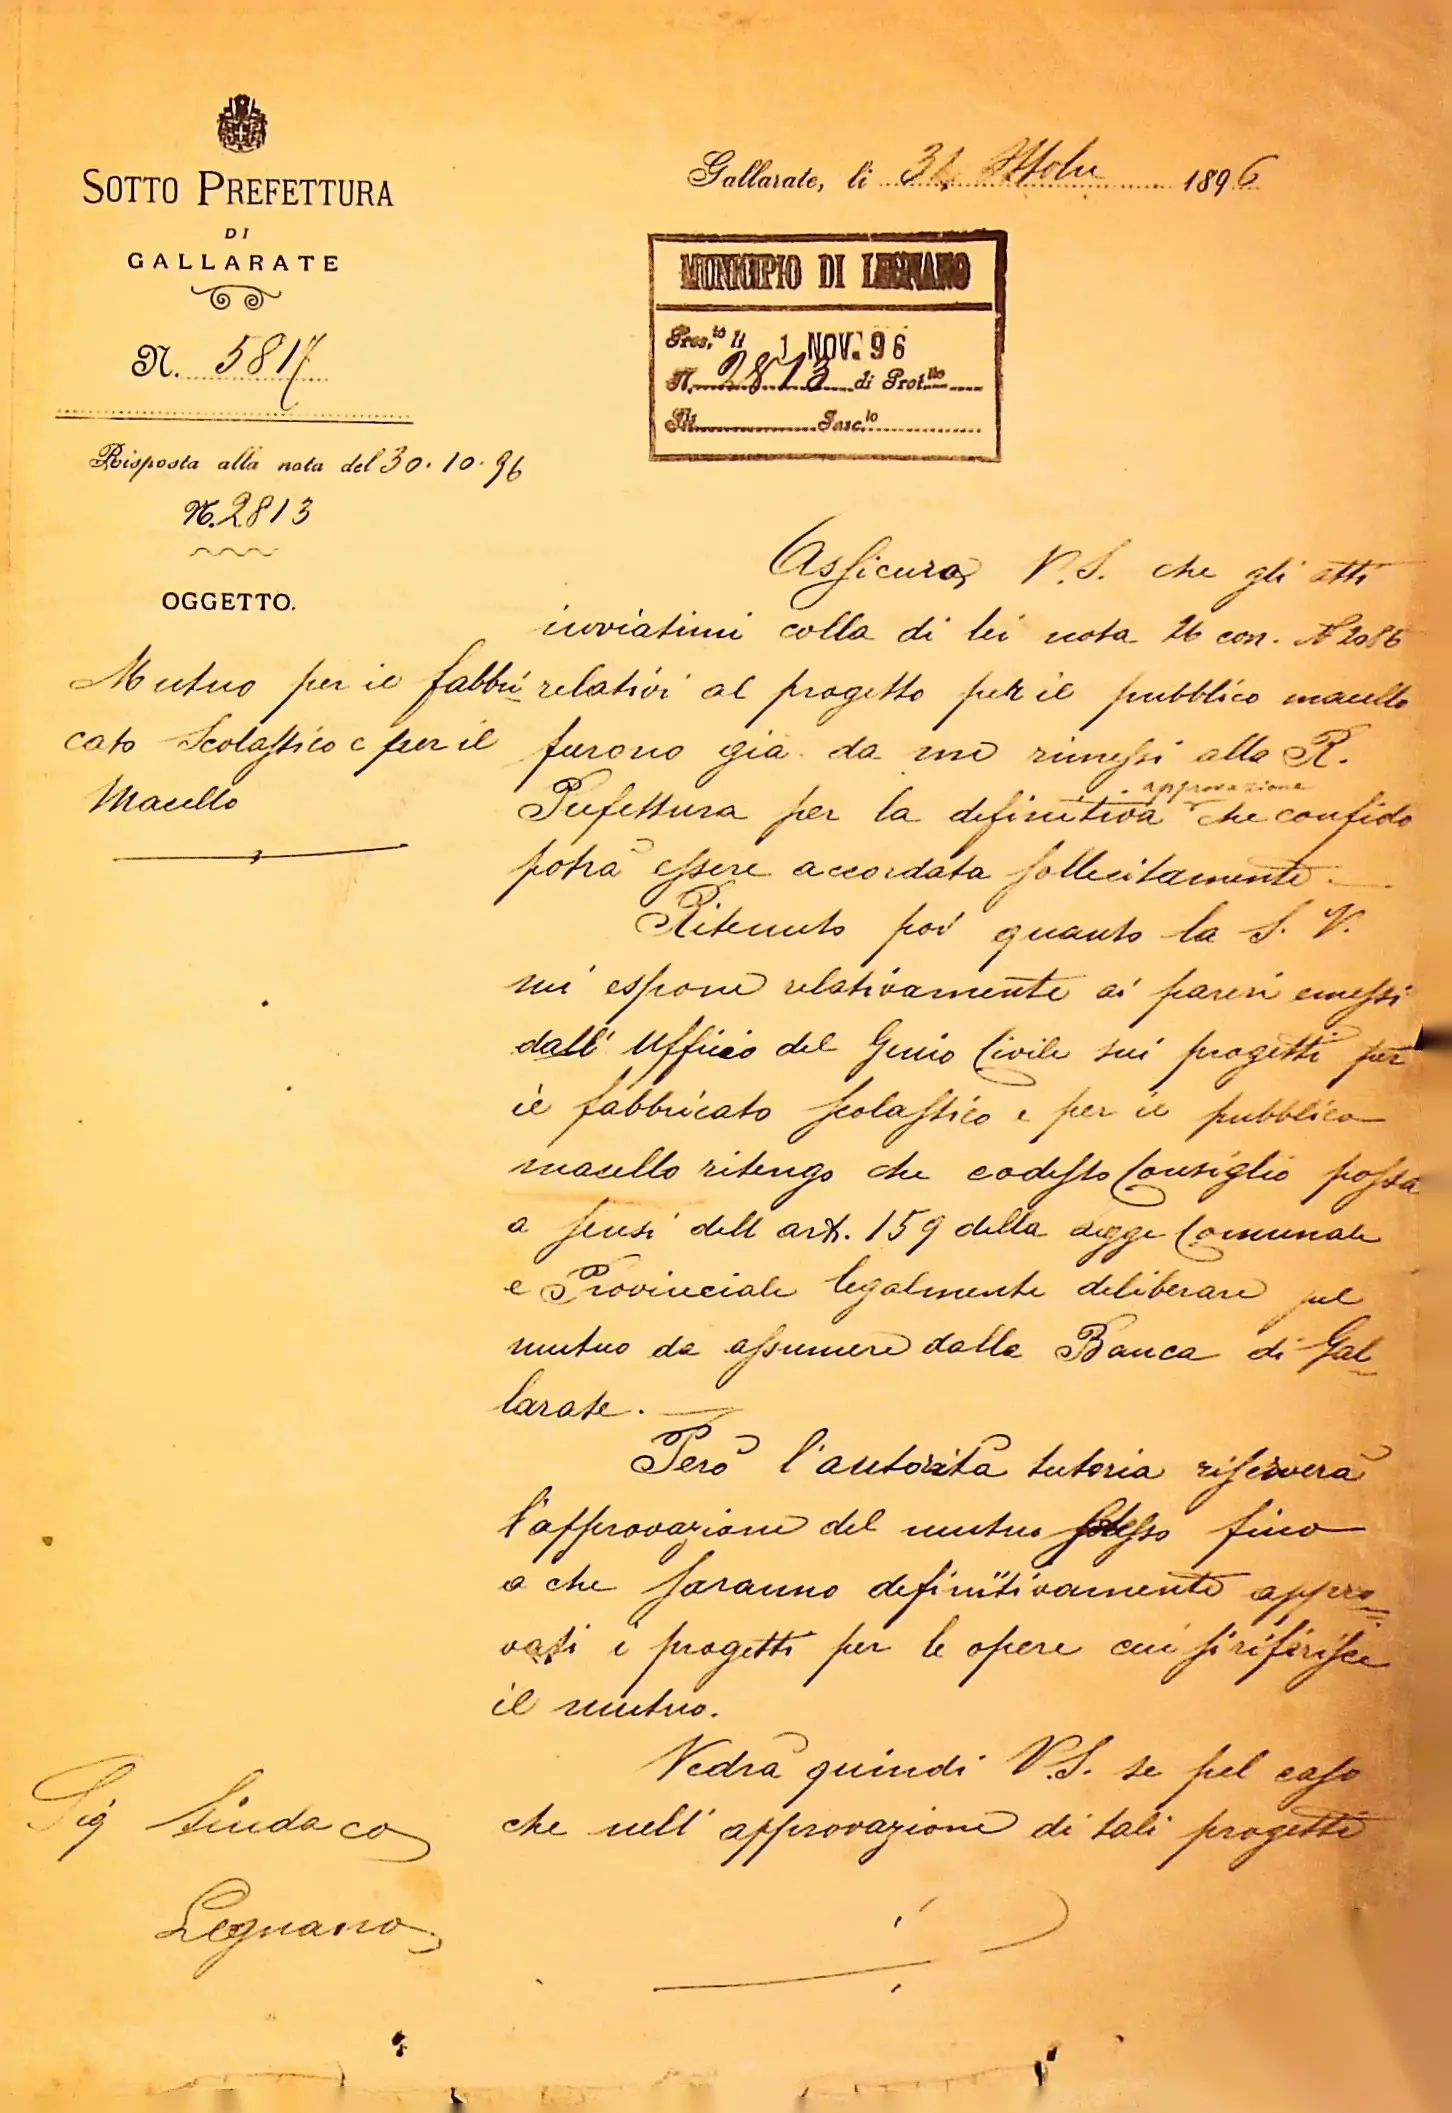 SOTTO PREFETTURA
DI
GALLARATE
N. 5817
Risposta alla nota del 30.10.96
N. 2813
OGGETTO.
Mutuo per il fabbri
cato Scolastico e per il
Macello
Gallarate, li 31 Ottobre 1896
MUNICIPIO DI LEGNANO
Pres.to li 1 NOV. 96
N. 2813 di Prot.llo
Fasc.lo
Assicuro V.S. che gli atti
inviatimi colla di lei nota 26 con. N 2086
relativi al progetto per il pubblico macello
furono già da me rimessi alla R.
Prefettura per la definitiva approvazione che confido
potrà essere accordata sollecitamente.
Ritenuto poi quanto la S. V.
mi espone relativamente ai pareri emessi
dall' Ufficio del Genio Civile sui progetti per
il fabbricato scolastico e per il pubblico
macello ritengo che codesto Consiglio possa
a sensi dell art. 159 della Legge Comunale
e Provinciale legalmente deliberare sul
mutuo da assumere dalla Banca di Gal
larate.
Però l'autorità tutoria riserverà
l'approvazione del mutuo stesso fino
a che saranno definitivamente appro
vati i progetti per le opere cui si riferisce
il mutuo.
Vedrà quindi V.S. se pel caso
che nell' approvazione di tali progetti
Sig Sindaco
Legnano